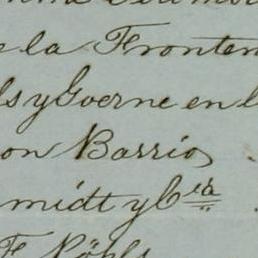 e la Fronten
ls y Goerne en l
on Barrios
midt y Cia
F. Röhls